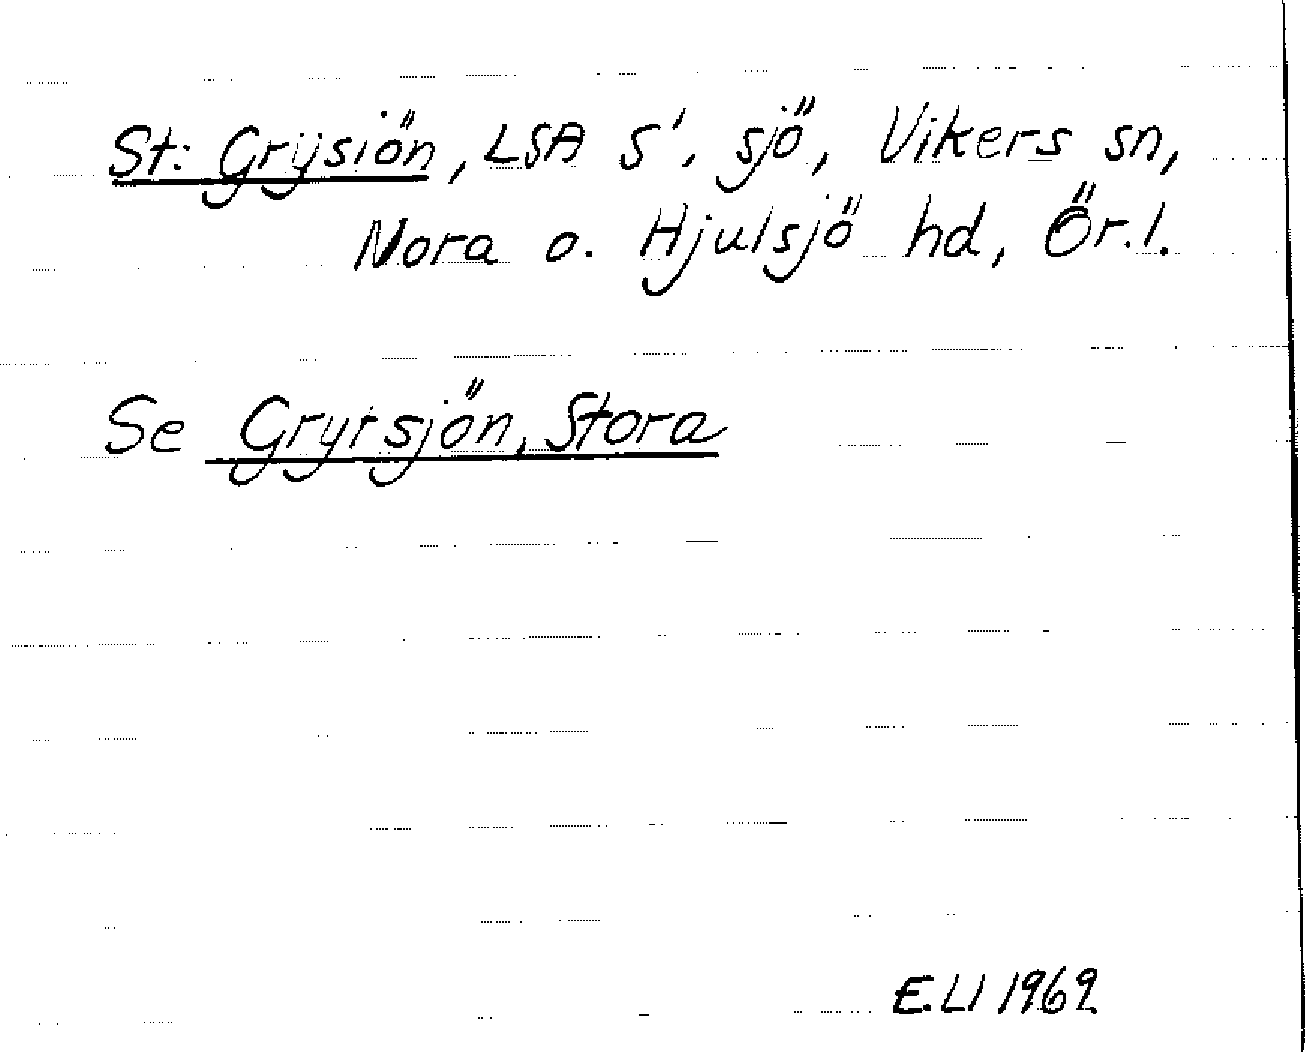 St: Grÿsiön, LSA S', sjö, Vikers sn,
Nora o. Hjulsjö hd, Ör.l.
Se Grytsjön, Stora
E.Ll 1969